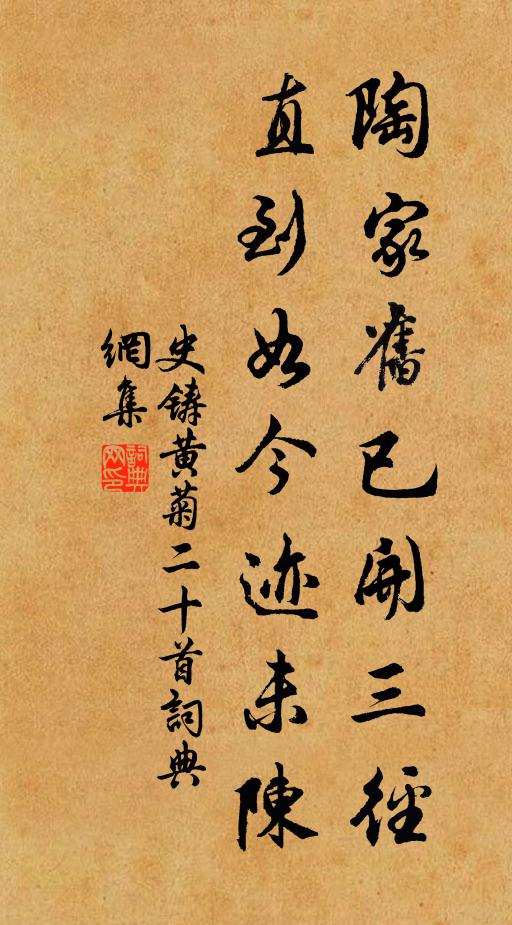 陶家舊已開三徑
直到如今迹未陳
史鑄黄菊二十首詞典
網集
詞典
网印